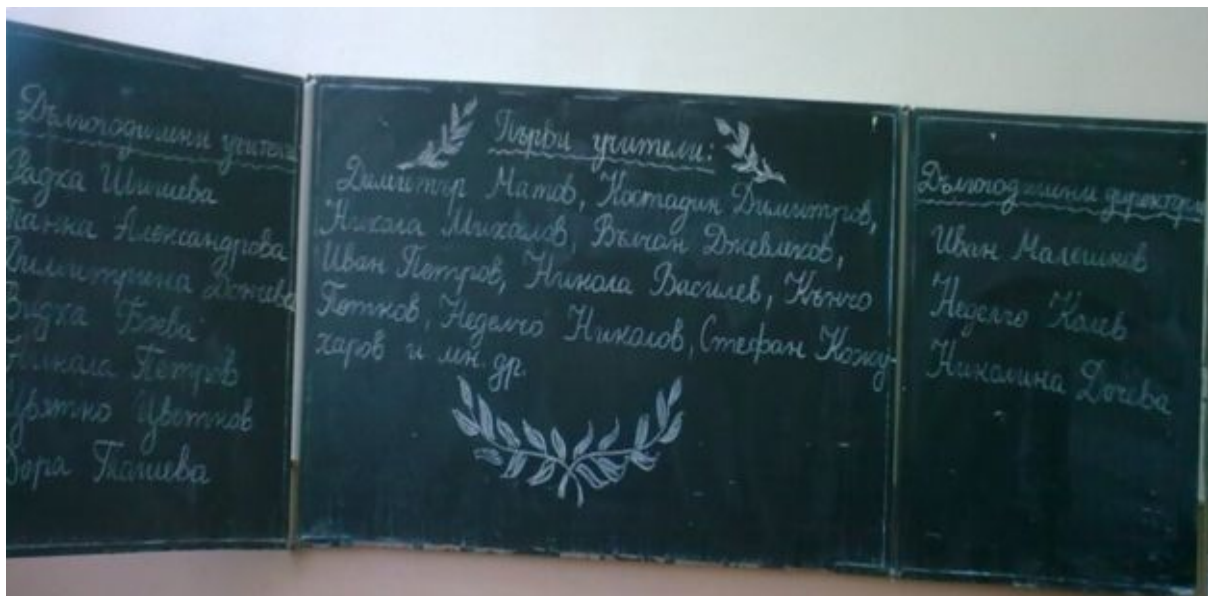 Дългогодишни учители
Радка Шишева
Танка Александрова
Димитрина Дочева
Видка Бяева
Никола Петров
Цвятко Цветков
Дора Ташева
Първи учители:
Димитър Матов, Костадин Димитров,
Никола Михалов, Вълчан Джевлеков,
Иван Петров, Никола Василев, Кънчо
Готков, Неделчо Николов, Стефан Кожу-
харов и мн. др.
Дългогодишни директори
Иван Малешков
Неделчо Колев
Николина Дочева